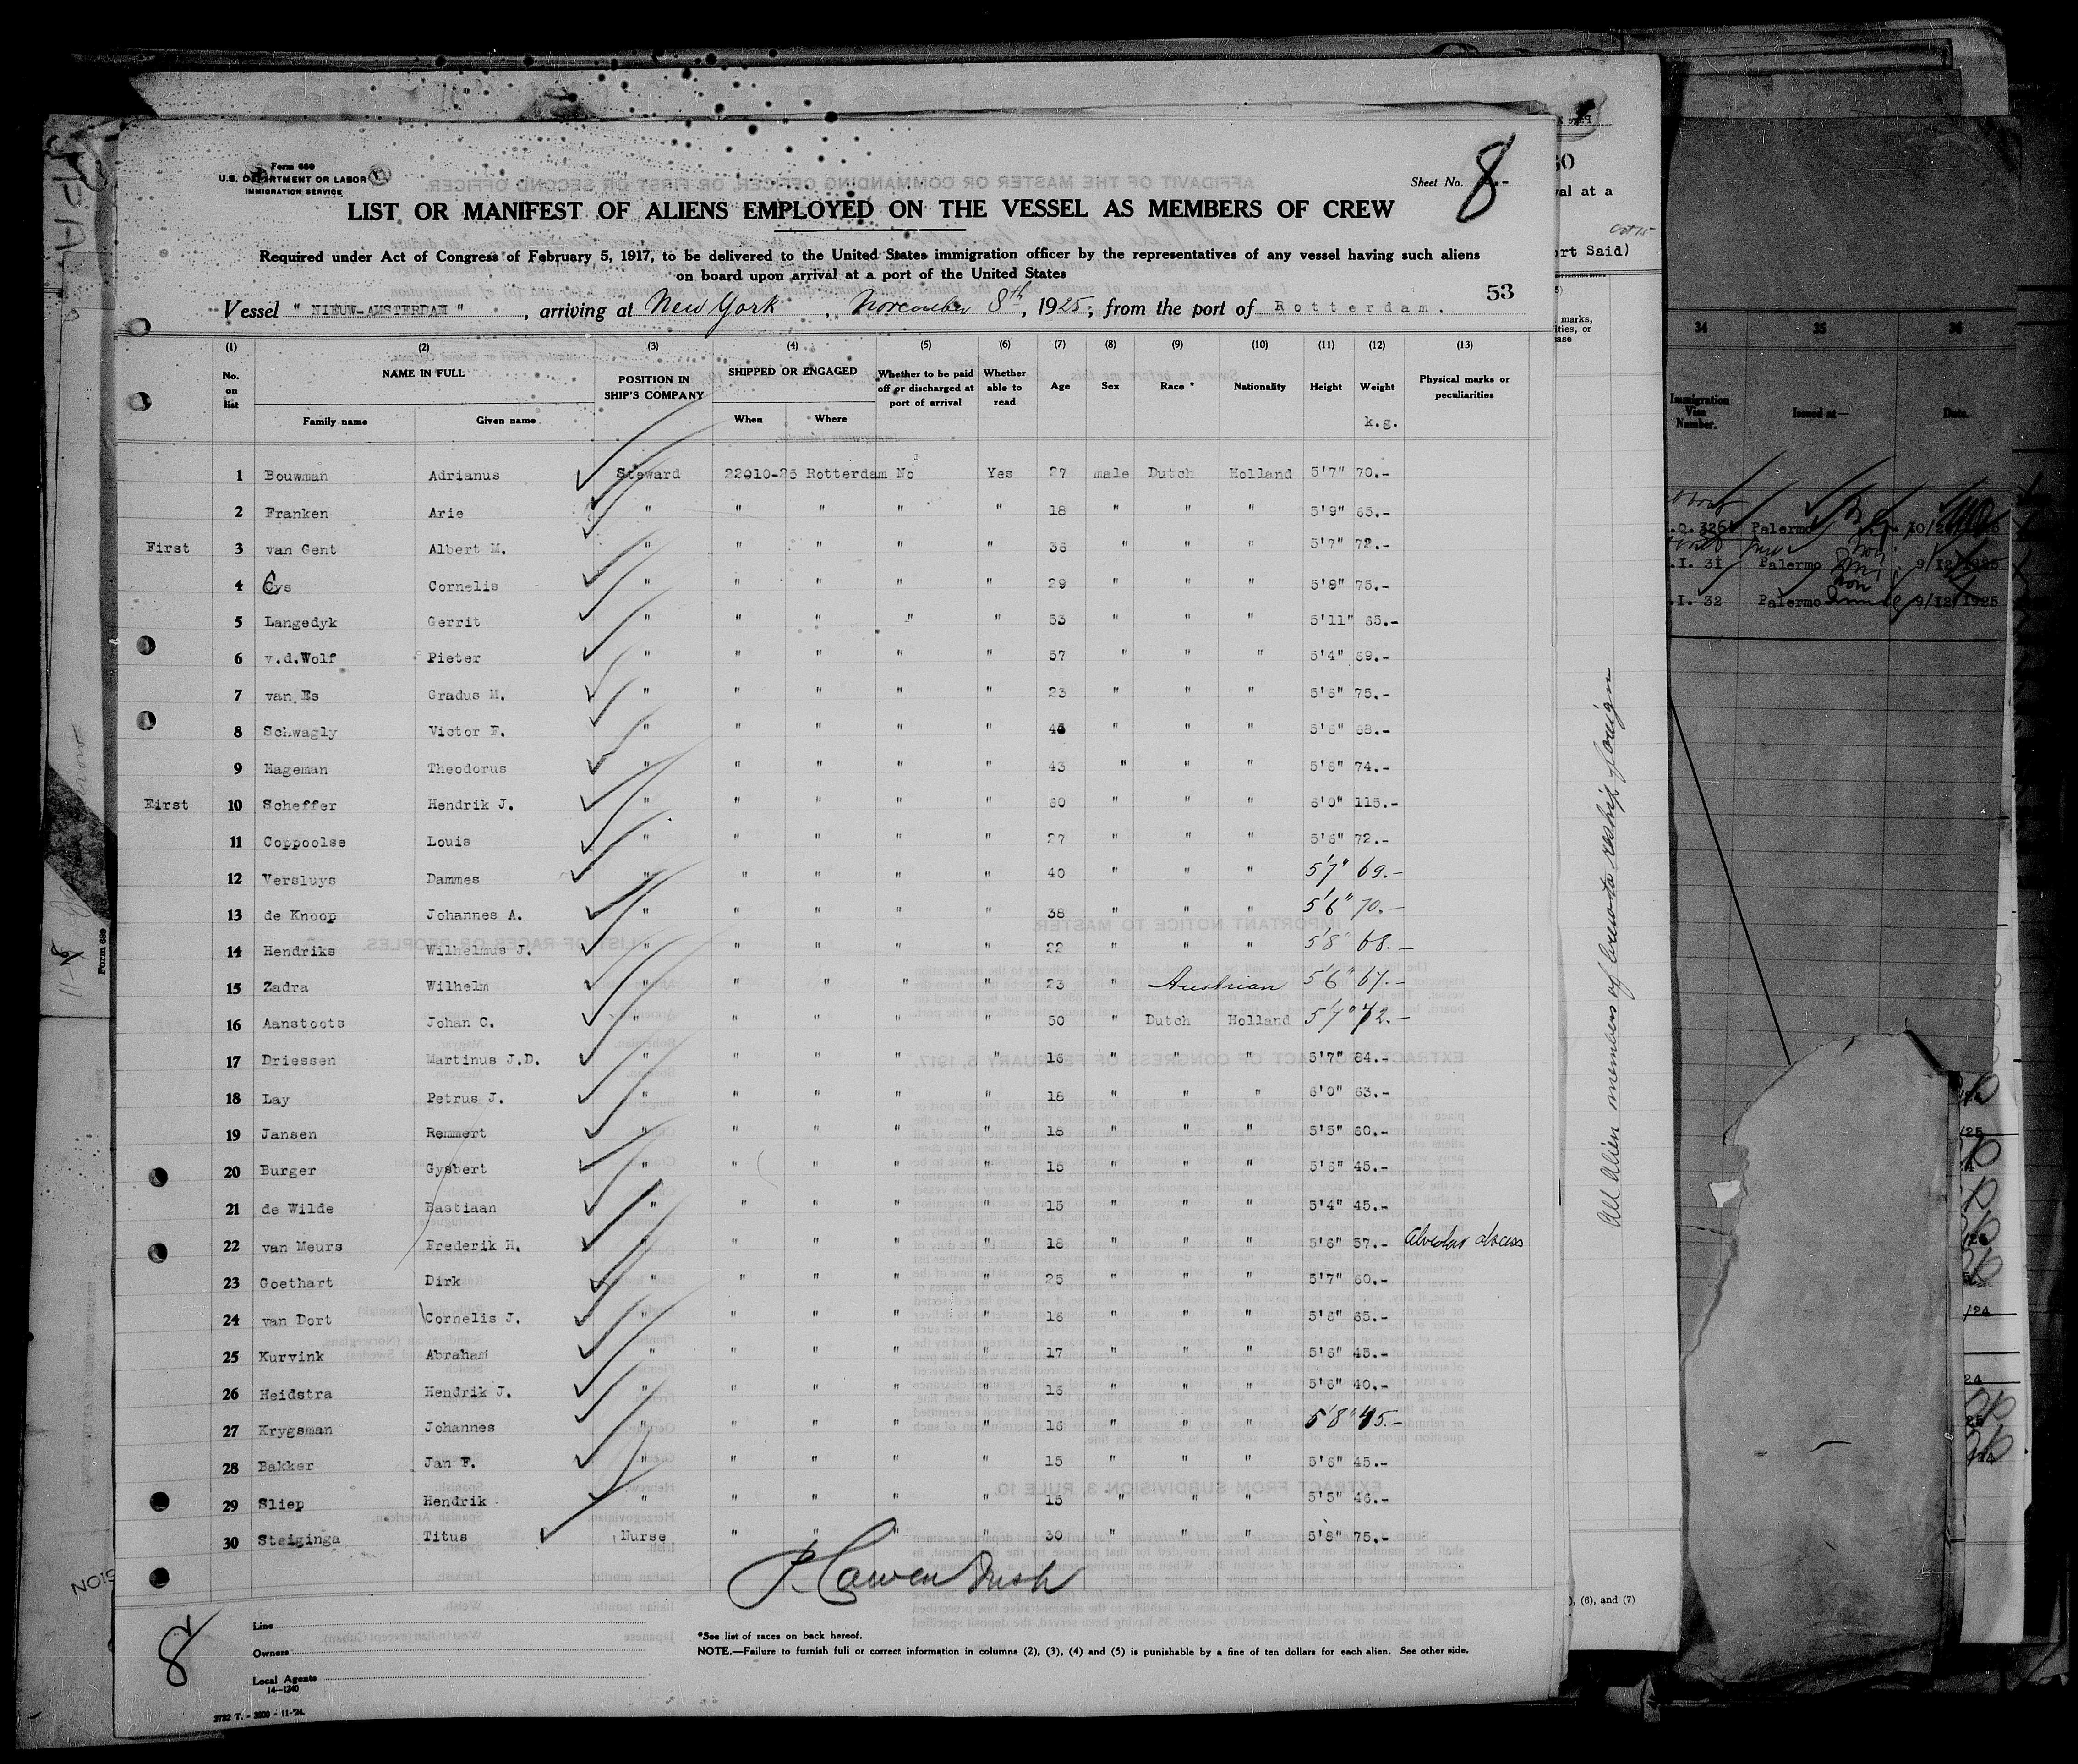 Form 680
U.S. DEPARTMENT OR LABOR
IMMIGRATION SERVICE
Sheet No. 8
LIST OR MANIFEST OF ALIENS EMPLOYED ON THE VESSEL AS MEMBERS OF CREW
Required under Act of Congress of February 5, 1917, to be delivered to the United States immigration officer by the representatives of any vessel having such aliens
on board upon arrival at a port of the United States
53
Vessel " NIEUW-AMSTERDAM ", arriving at New York, November 8th, 1925, from the port of Rotterdam.
(1) (2) (3) (4) (5) (6) (7) (8) (9) (10) (11) (12) (13)
No. on list NAME IN FULL POSITION IN SHIP'S COMPANY SHIPPED OR ENGAGED Whether to be paid off or discharged at port of arrival Whether able to read Age Sex Race * Nationality Height Weight Physical marks or peculiarities
Family name Given name When Where k.g.
1 Bouwman Adrianus Steward 22010-25 Rotterdam No Yes 27 male Dutch Holland 5'7" 70.-
2 Franken Arie " " " " " 18 " " " 5'9" 65.-
First 3 van Gent Albert M. " " " " " 36 " " " 5'7" 72.-
4 Cys Cornelis " " " " " 29 " " " 5'8" 75.-
5 Langedyk Gerrit " " " " " 53 " " " 5'11" 65.-
6 v.d.Wolf Pieter " " " " " 57 " " " 5'4" 69.-
7 van Es Gradus M. " " " " " 23 " " " 5'6" 75.-
8 Schwagly Victor F. " " " " " " " " 5'6" 68.-
9 Hageman Theodorus " " " " " 43 " " " 5'6" 74.-
First 10 Scheffer Hendrik J. " " " " " 60 " " " 6'0" 115.-
11 Coppoolse Louis " " " " " 27 " " " 5'6" 72.-
12 Versluys Dammes " " " " " 40 " " " 5'7" 69.-
13 de Knoop Johannes A. " " " " " 38 " " " 5'6" 70.-
14 Hendriks Wilhelmus J. " " " " " 22 " " " 5'8" 68.-
15 Zadra Wilhelm " " " " " 23 " Austrian 5'6" 67.-
16 Aanstoots Johan C. " " " " " 50 " Dutch Holland 5'7" 72.-
17 Driessen Martinus J.D. " " " " " 16 " " " 5'7" 64.-
18 Lay Petrus J. " " " " " 18 " " " 6'0" 63.-
19 Jansen Remmert " " " " " 18 " " " 5'5" 60.-
20 Burger Gysbert " " " " " 15 " " " 5'6" 45.-
21 de Wilde Bastiaan " " " " " 15 " " " 5'4" 45.-
22 van Meurs Frederik H. " " " " " 18 " " " 5'6" 57.- Alveolar abcess
23 Goethart Dirk " " " " " 25 " " " 5'7" 60.-
24 van Dort Cornelis J. " " " " " 16 " " " 5'6" 65.-
25 Kurvink Abraham " " " " " 17 " " " 5'6" 45.-
26 Heidstra Hendrik J. " " " " " 16 " " " 5'6" 40.-
27 Krygsman Johannes " " " " " 16 " " " 5'8" 45.-
28 Bakker Jan F. " " " " " 15 " " " 5'6" 45.-
29 Sliep Hendrik " " " " " 15 " " " 5'5" 46.-
30 Steiginga Titus Nurse " " " " 30 " " " 5'8" 75.-
8
Line
Owners
Local Agents
14-1240
*See list of races on back hereof.
NOTE.—Failure to furnish full or correct information in columns (2), (3), (4) and (5) is punishable by a fine of ten dollars for each alien. See other side.
3732 T. - 3000 - 11-'24.
Form 689
val at a
ort Said)
marks,
All alien members of crew to reship foreign
), (6), and (7)
34 35 36
Immigration Visa Number. Issued at— Date.
3264 Palermo
.I. 31 Palermo 9/12/1925
.I. 32 Palermo 9/12/1925